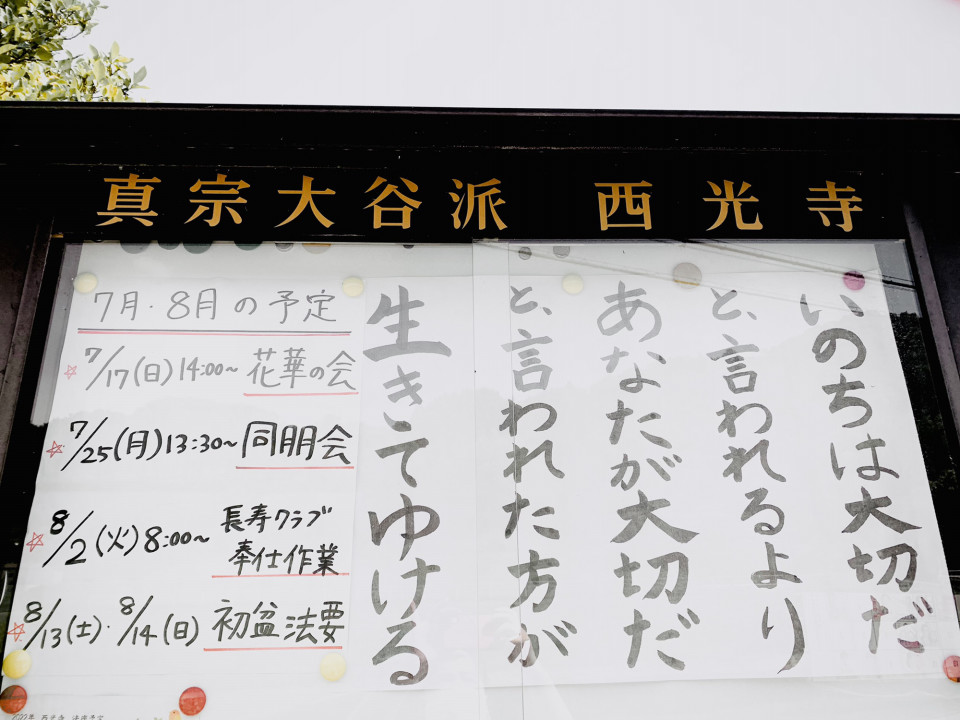 真宗大谷派 西光寺
いのちは大切だ
と、言われるより
あなたが大切だ
と、言われた方が
生きてゆける
7月・8月の予定
7/17(日)14:00~ 花華の会
7/25(月)13:30~ 同朋会
8/2(火)8:00~ 長寿クラブ
奉仕作業
8/13(土)・8/14(日) 初盆法要